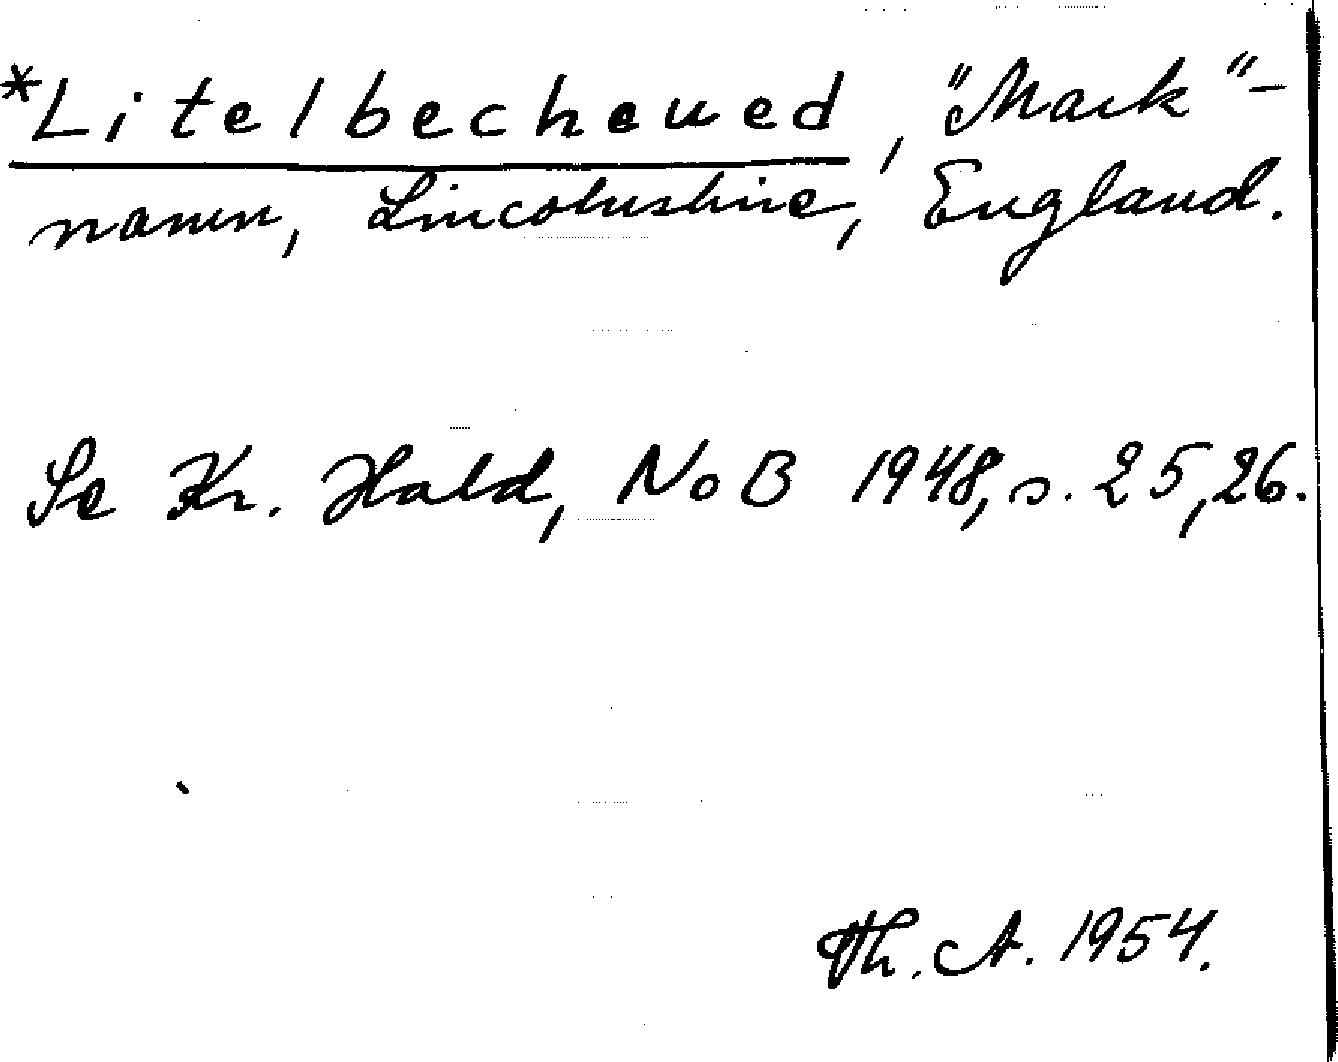 *Litelbecheued, "Mark"-
namn, Lincolnshire, England.
Se Kr. Hald, NoB 1948, s. 25, 26.
Th. A. 1954.